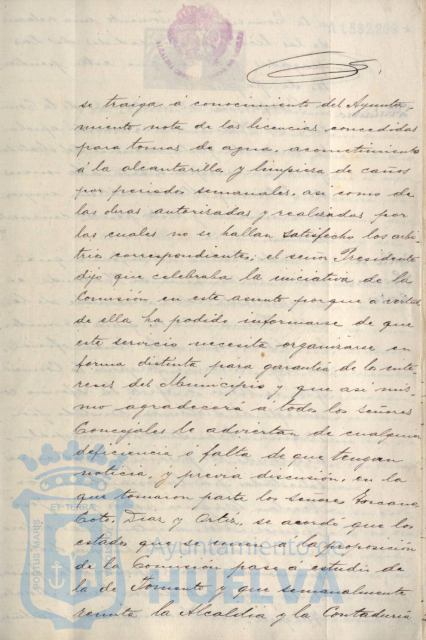 se traiga á conocimiento del Ayunta-
miento, nota de las licencias, concedidas
para tomas de agua, acometimiento
á la alcantarilla y limpieza de caños
por periodos semanales, asi como de
las obras autorizadas y realizadas por
las cuales no se hallan satisfecho los arbi-
trios correspondientes; el señor Presidente
dijo que celebraba la iniciativa de la
Comisión en este asunto porque á virtud
de ella ha podido informarse de que
este servicio necesita organizarse en
forma distinta para garantia de los inte-
reses del Municipio y que asi mis-
mo agradecerá á todos los señores
Concejales le adviertan de cualquier
deficiencia ó falta de que tengan
noticia, y previa discusión, en la
que tomaron parte los señores Toscano
Coto, Diaz y Ortiz, se acordó que los
estados que se unen a la proposición
de la Comisión pase á estudio de
la de Fomento y que semanalmente
remita la Alcaldia y la Contaduria
PORTUS MARIS
ET TERRAE
Ayuntamiento de
HUELVA